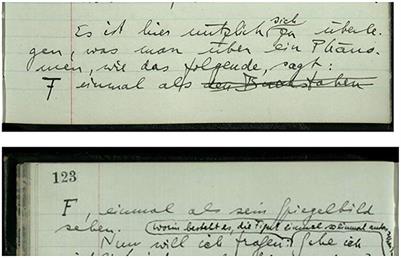 Es ist hier nützlich sich zu überle-
gen, was man über ein Phäno-
men, wie das folgende, sagt:
F einmal als den Buchstaben
123
F, einmal als sein Spiegelbild
sehen. Worin besteht es, die Figur einmal so einmal
Nun will ich fragen: Gebe ich